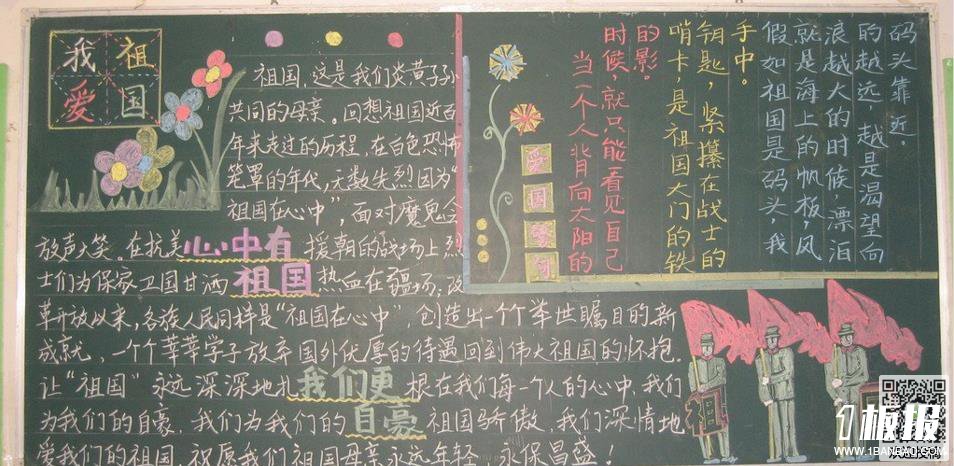 我爱
祖国
祖国，这是我们炎黄子孙
共同的母亲。回想祖国近百
年来走过的历程，在白色恐怖
笼罩的年代，无数先烈因为“
祖国在心中”，面对魔鬼会
放声大笑。在抗美心中有援朝的战场上烈
士们为保家卫国甘洒祖国热血在疆场；改
革开放以来，各族人民同样是“祖国在心中”，创造出一个个举世瞩目的新
成就，一个个莘莘学子放弃国外优厚的待遇回到伟大祖国的怀抱。
让“祖国”永远深深地扎我们更根在我们每一个人的心中，我们
为我们的自豪，我们为我们的自豪祖国骄傲，我们深情地
爱我们的祖国，祝愿我们祖国母亲永远年轻，永保昌盛！
爱国警句
当一个人背向太阳的
时候，就只能看见自己
的影。
哨卡，是祖国大门的铁
钥匙，紧攥在战士的
手中。
假如祖国是码头，我
就是海上的帆板，风
浪越大的时候，漂泊
的越远 越是渴望向
码头靠近。
1板报
WWW.1BANBAO.COM